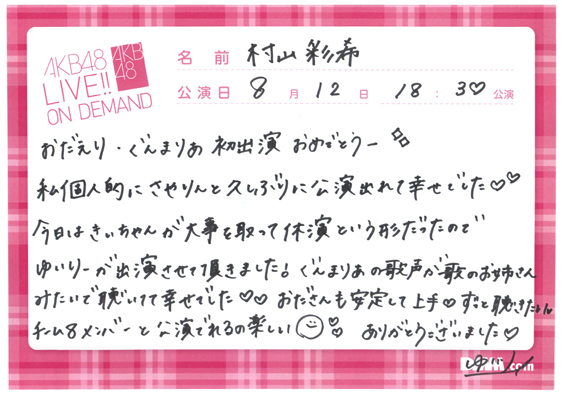 AKB48
LIVE!!
ON DEMAND
AKB
48
名前 村山彩希
公演日 8月12日 18:30公演
おだえり・ぐんまりあ 初出演 おめでとうー
私個人的にさやりんと久しぶりに公演出れて幸せでした♡♡
今日はきぃちゃんが大事を取って休演という形だったので
ゆいりーが出演させて頂きました! ぐんまりあの歌声が歌のお姉さん
みたいで聴いてて幸せでした♡♡ おださんも安定して上手♡ ずっと聴きたい
チーム8メンバーと公演でれるの楽しい ♡♡ ありがとうございました♡
DMM.com